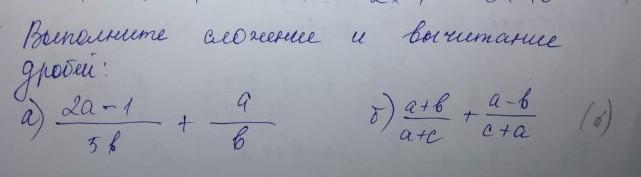 Выполните сложение и вычитание
дробей:
а) (2a - 1)/(5b) + a/b б) (a+b)/(a+c) + (a-b)/(c+a)